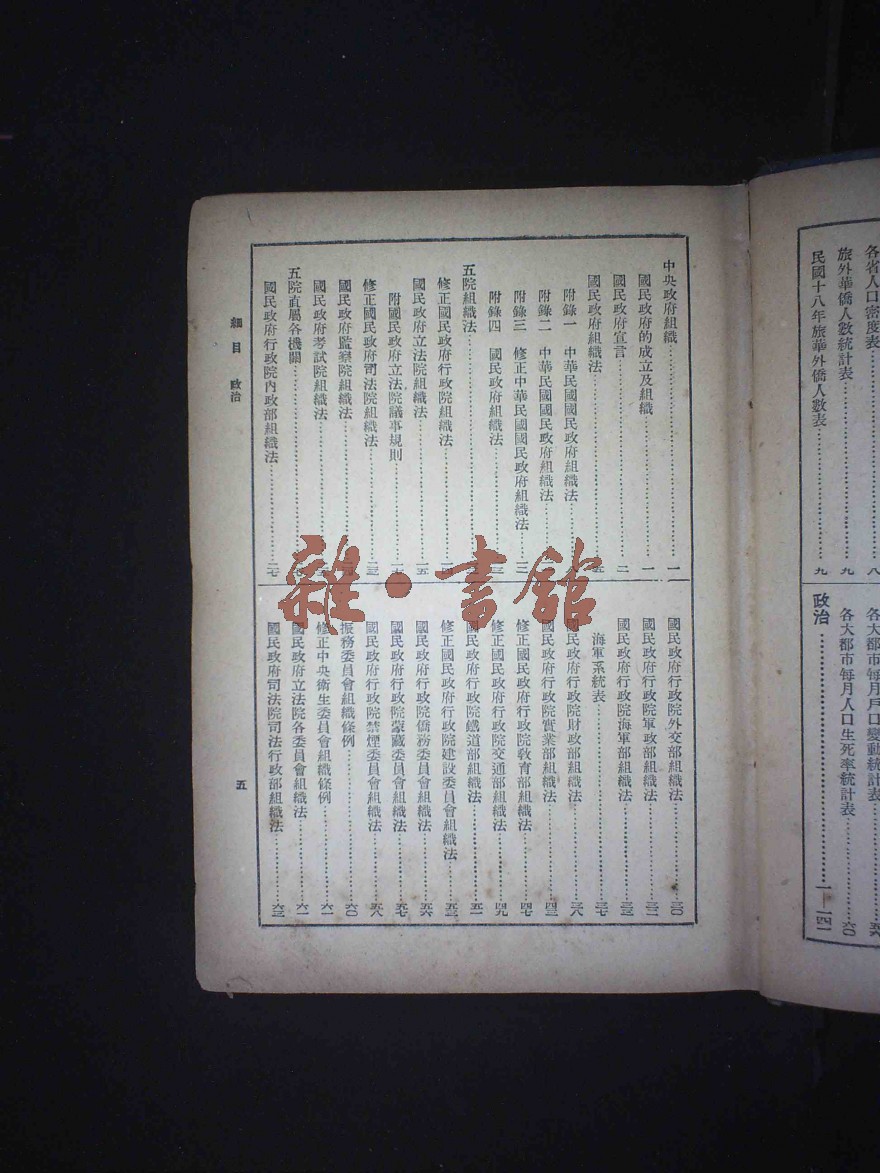 各省人口密度表……八
旅外華僑人數統計表……九
民國十八年旅華外僑人數表……九
各大都市每月戶口變動統計表……
各大都市每月人口生死率統計表……六〇
政治……一—一四一
中央政府組織……一
國民政府的成立及組織……一
國民政府宣言……二
國民政府組織法……
附錄一 中華民國國民政府組織法……
附錄二 中華民國國民政府組織法……
附錄三 修正中華民國國民政府組織法……
附錄四 國民政府組織法……
五院組織法……
修正國民政府行政院組織法……
國民政府立法院組織法……一五
附國民政府立法院議事規則……
修正國民政府司法院組織法……
國民政府監察院組織法……
國民政府考試院組織法……
五院直屬各機關……
國民政府行政院內政部組織法……二七
國民政府行政院外交部組織法……三〇
國民政府行政院軍政部組織法……三二
國民政府行政院海軍部組織法……
海軍系統表……三七
國民政府行政院財政部組織法……三八
國民政府行政院實業部組織法……四三
修正國民政府行政院教育部組織法……四七
修正國民政府行政院交通部組織法……四九
國民政府行政院鐵道部組織法……五一
修正國民政府行政院建設委員會組織法……五三
國民政府行政院僑務委員會組織法……五六
國民政府行政院蒙藏委員會組織法……五七
國民政府行政院禁煙委員會組織法……五八
振務委員會組織條例……六〇
修正中央衛生委員會組織條例……六一
國民政府立法院各委員會組織法……六一
國民政府司法院司法行政部組織法……六三
細目 政治
五
雜·書館